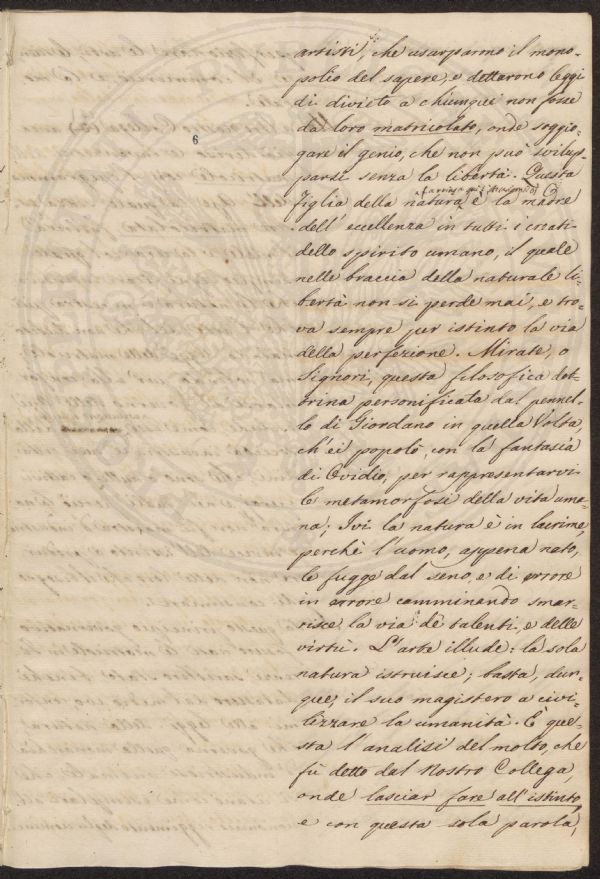 artisti, che usarparmo il mono=
polio del sapere, e dettarono leggi
di divieto a chiunque non fosse
da loro matricolato, onde soggio=
gare il genio, che non può svilup=
parsi senza la libertà. Questa
figlia della natura è la madre
dell'eccellenza in tutti i creati
dello spirito umano, il quale
nelle braccia della naturale li=
bertà non si perde mai, e tro=
va sempre per istinto la via
della perfezione. Mirate, o
Signori, questa filosofica dot=
trina personificata dal pennel=
lo di Giordano in quella Volta,
ch'ei popolò, con la fantasia
di Ovidio, per rappresentarvi
le metamorfosi della vita uma=
na; Ivi la natura è in lacrime,
perchè l'uomo, appena nato,
le fugge dal seno, e di errore
in errore camminando smar=
risce la via de talenti, e delle
virtù. L'arte illude: la sola
natura istruisce; basta, dun=
que, il suo magistero a civi=
lizzare la umanità. È que=
sta l'analisi del molto, che
fù detto dal Nostro Collega,
onde lasciar fare all'istinto
e con questa sola parola,
6